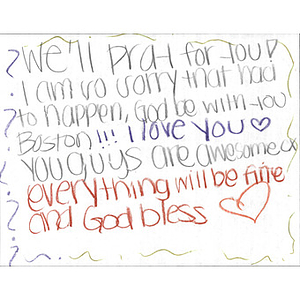 We'll pray for you!
I am so sorry that had
to happen, God be with you
Boston!!! I love you ♡
you guys are awesome
everything will be fine
and God bless ♡